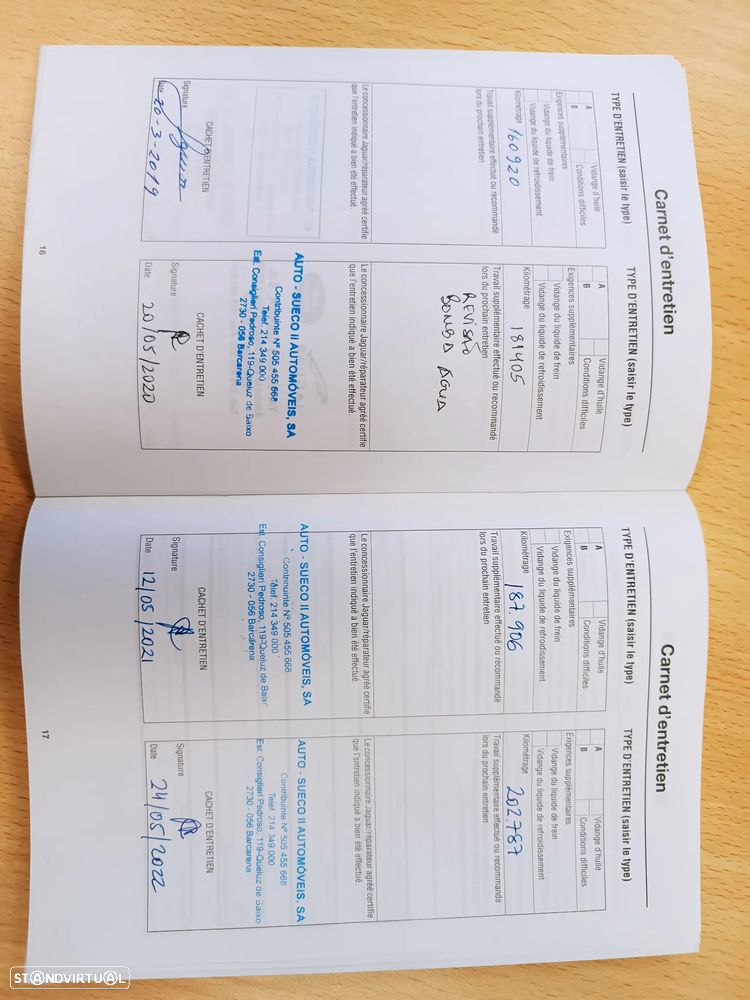 Carnet d'entretien
TYPE D'ENTRETIEN (saisir le type)
A
Vidange d'huile
B
Conditions difficiles
Exigences supplémentaires
Vidange du liquide de frein
Vidange du liquide de refroidissement
Kilométrage 160920
Travail supplémentaire effectué ou recommandé
lors du prochain entretien
Le concessionnaire Jaguar/réparateur agréé certifie
que l'entretien indiqué a bien été effectué.
CACHET D'ENTRETIEN
Signature
Date 20-3-2019
TYPE D'ENTRETIEN (saisir le type)
A
Vidange d'huile
B
Conditions difficiles
Exigences supplémentaires
Vidange du liquide de frein
Vidange du liquide de refroidissement
Kilométrage 181405
Travail supplémentaire effectué ou recommandé
lors du prochain entretien
REVISÃO
BOMBA ÁGUA
Le concessionnaire Jaguar/réparateur agréé certifie
que l'entretien indiqué a bien été effectué.
AUTO - SUECO II AUTOMÓVEIS, SA
Contribuinte Nº 505 455 668
Telef. 214 349 000
Est. Consiglieri Pedroso, 119-Queluz de Baixo
2730 - 056 Barcarena
CACHET D'ENTRETIEN
Signature
Date 20/05/2020
16
Carnet d'entretien
TYPE D'ENTRETIEN (saisir le type)
A
Vidange d'huile
B
Conditions difficiles
Exigences supplémentaires
Vidange du liquide de frein
Vidange du liquide de refroidissement
Kilométrage 187.906
Travail supplémentaire effectué ou recommandé
lors du prochain entretien
Le concessionnaire Jaguar/réparateur agréé certifie
que l'entretien indiqué a bien été effectué.
AUTO - SUECO II AUTOMÓVEIS, SA
Contribuinte Nº 505 455 668
Telef. 214 349 000
Est. Consiglieri Pedroso, 119-Queluz de Baixo
2730 - 056 Barcarena
CACHET D'ENTRETIEN
Signature
Date 12/05/2021
TYPE D'ENTRETIEN (saisir le type)
A
Vidange d'huile
B
Conditions difficiles
Exigences supplémentaires
Vidange du liquide de frein
Vidange du liquide de refroidissement
Kilométrage 202.787
Travail supplémentaire effectué ou recommandé
lors du prochain entretien
Le concessionnaire Jaguar/réparateur agréé certifie
que l'entretien indiqué a bien été effectué.
AUTO - SUECO II AUTOMÓVEIS, SA
Contribuinte Nº 505 455 668
Telef. 214 349 000
Est. Consiglieri Pedroso, 119-Queluz de Baixo
2730 - 056 Barcarena
CACHET D'ENTRETIEN
Signature
Date 24/05/2022
17
STANDVIRTUAL